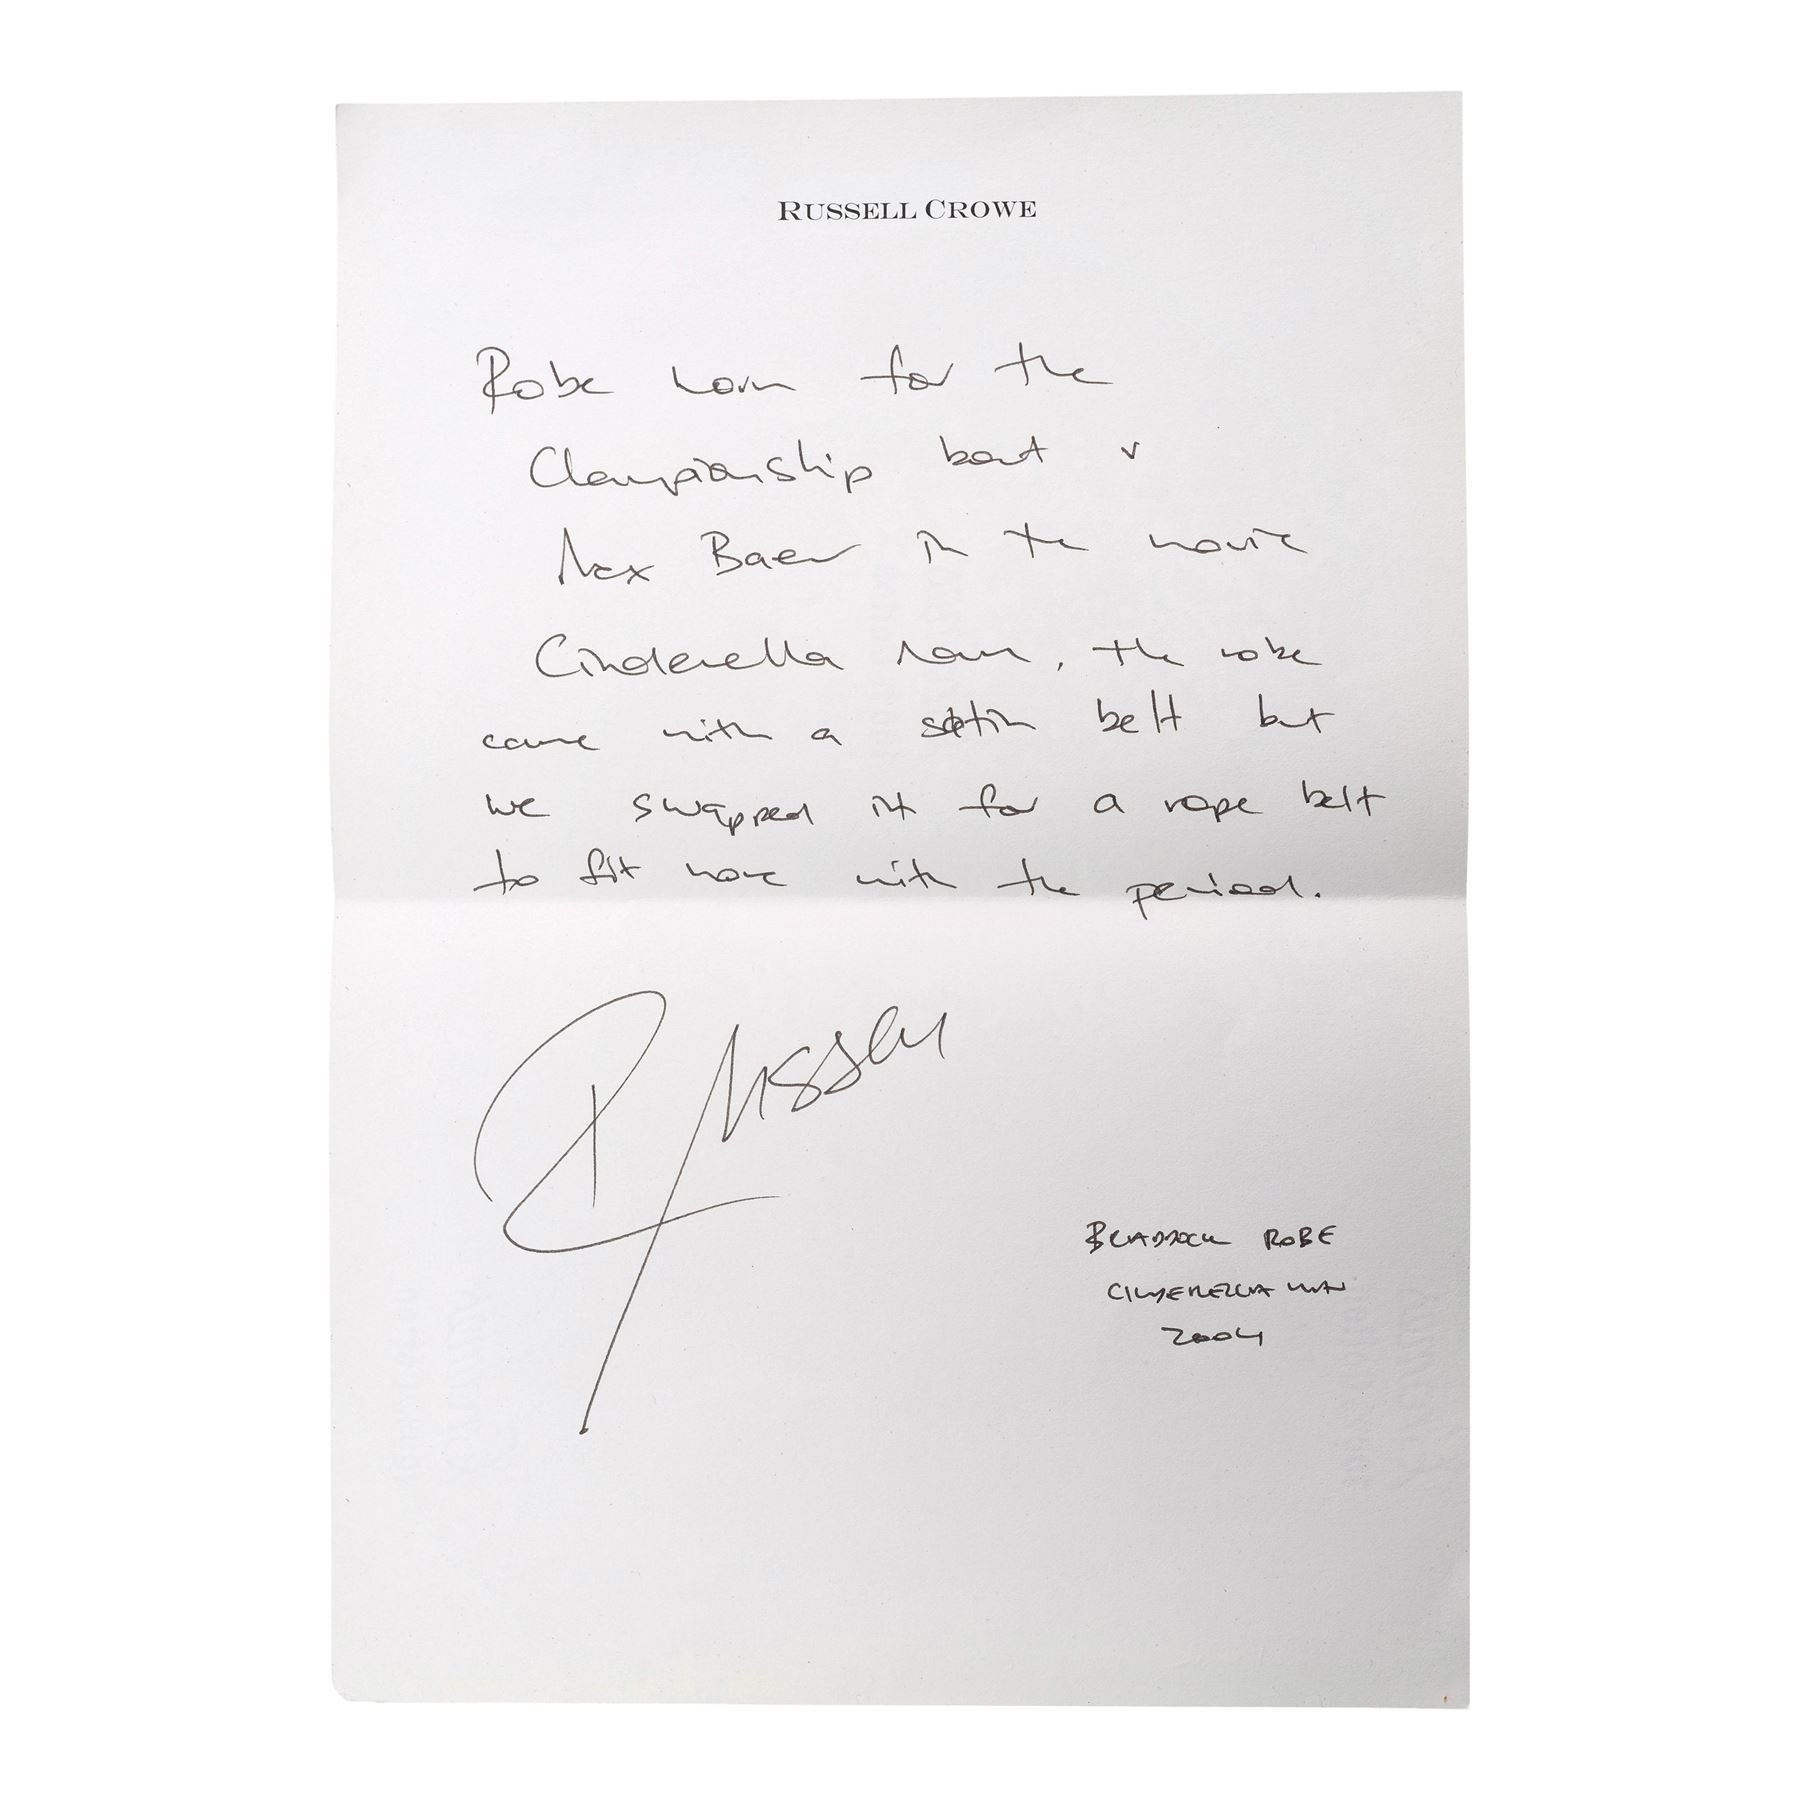 RUSSELL CROWE
Robe worn for the
Championship bout v
Max Baer in the movie
Cinderella Man, the robe
came with a satin belt but
we swapped it for a rope belt
to fit more with the period.
Russell
BRADDOCK ROBE
CINDERELLA MAN
2004